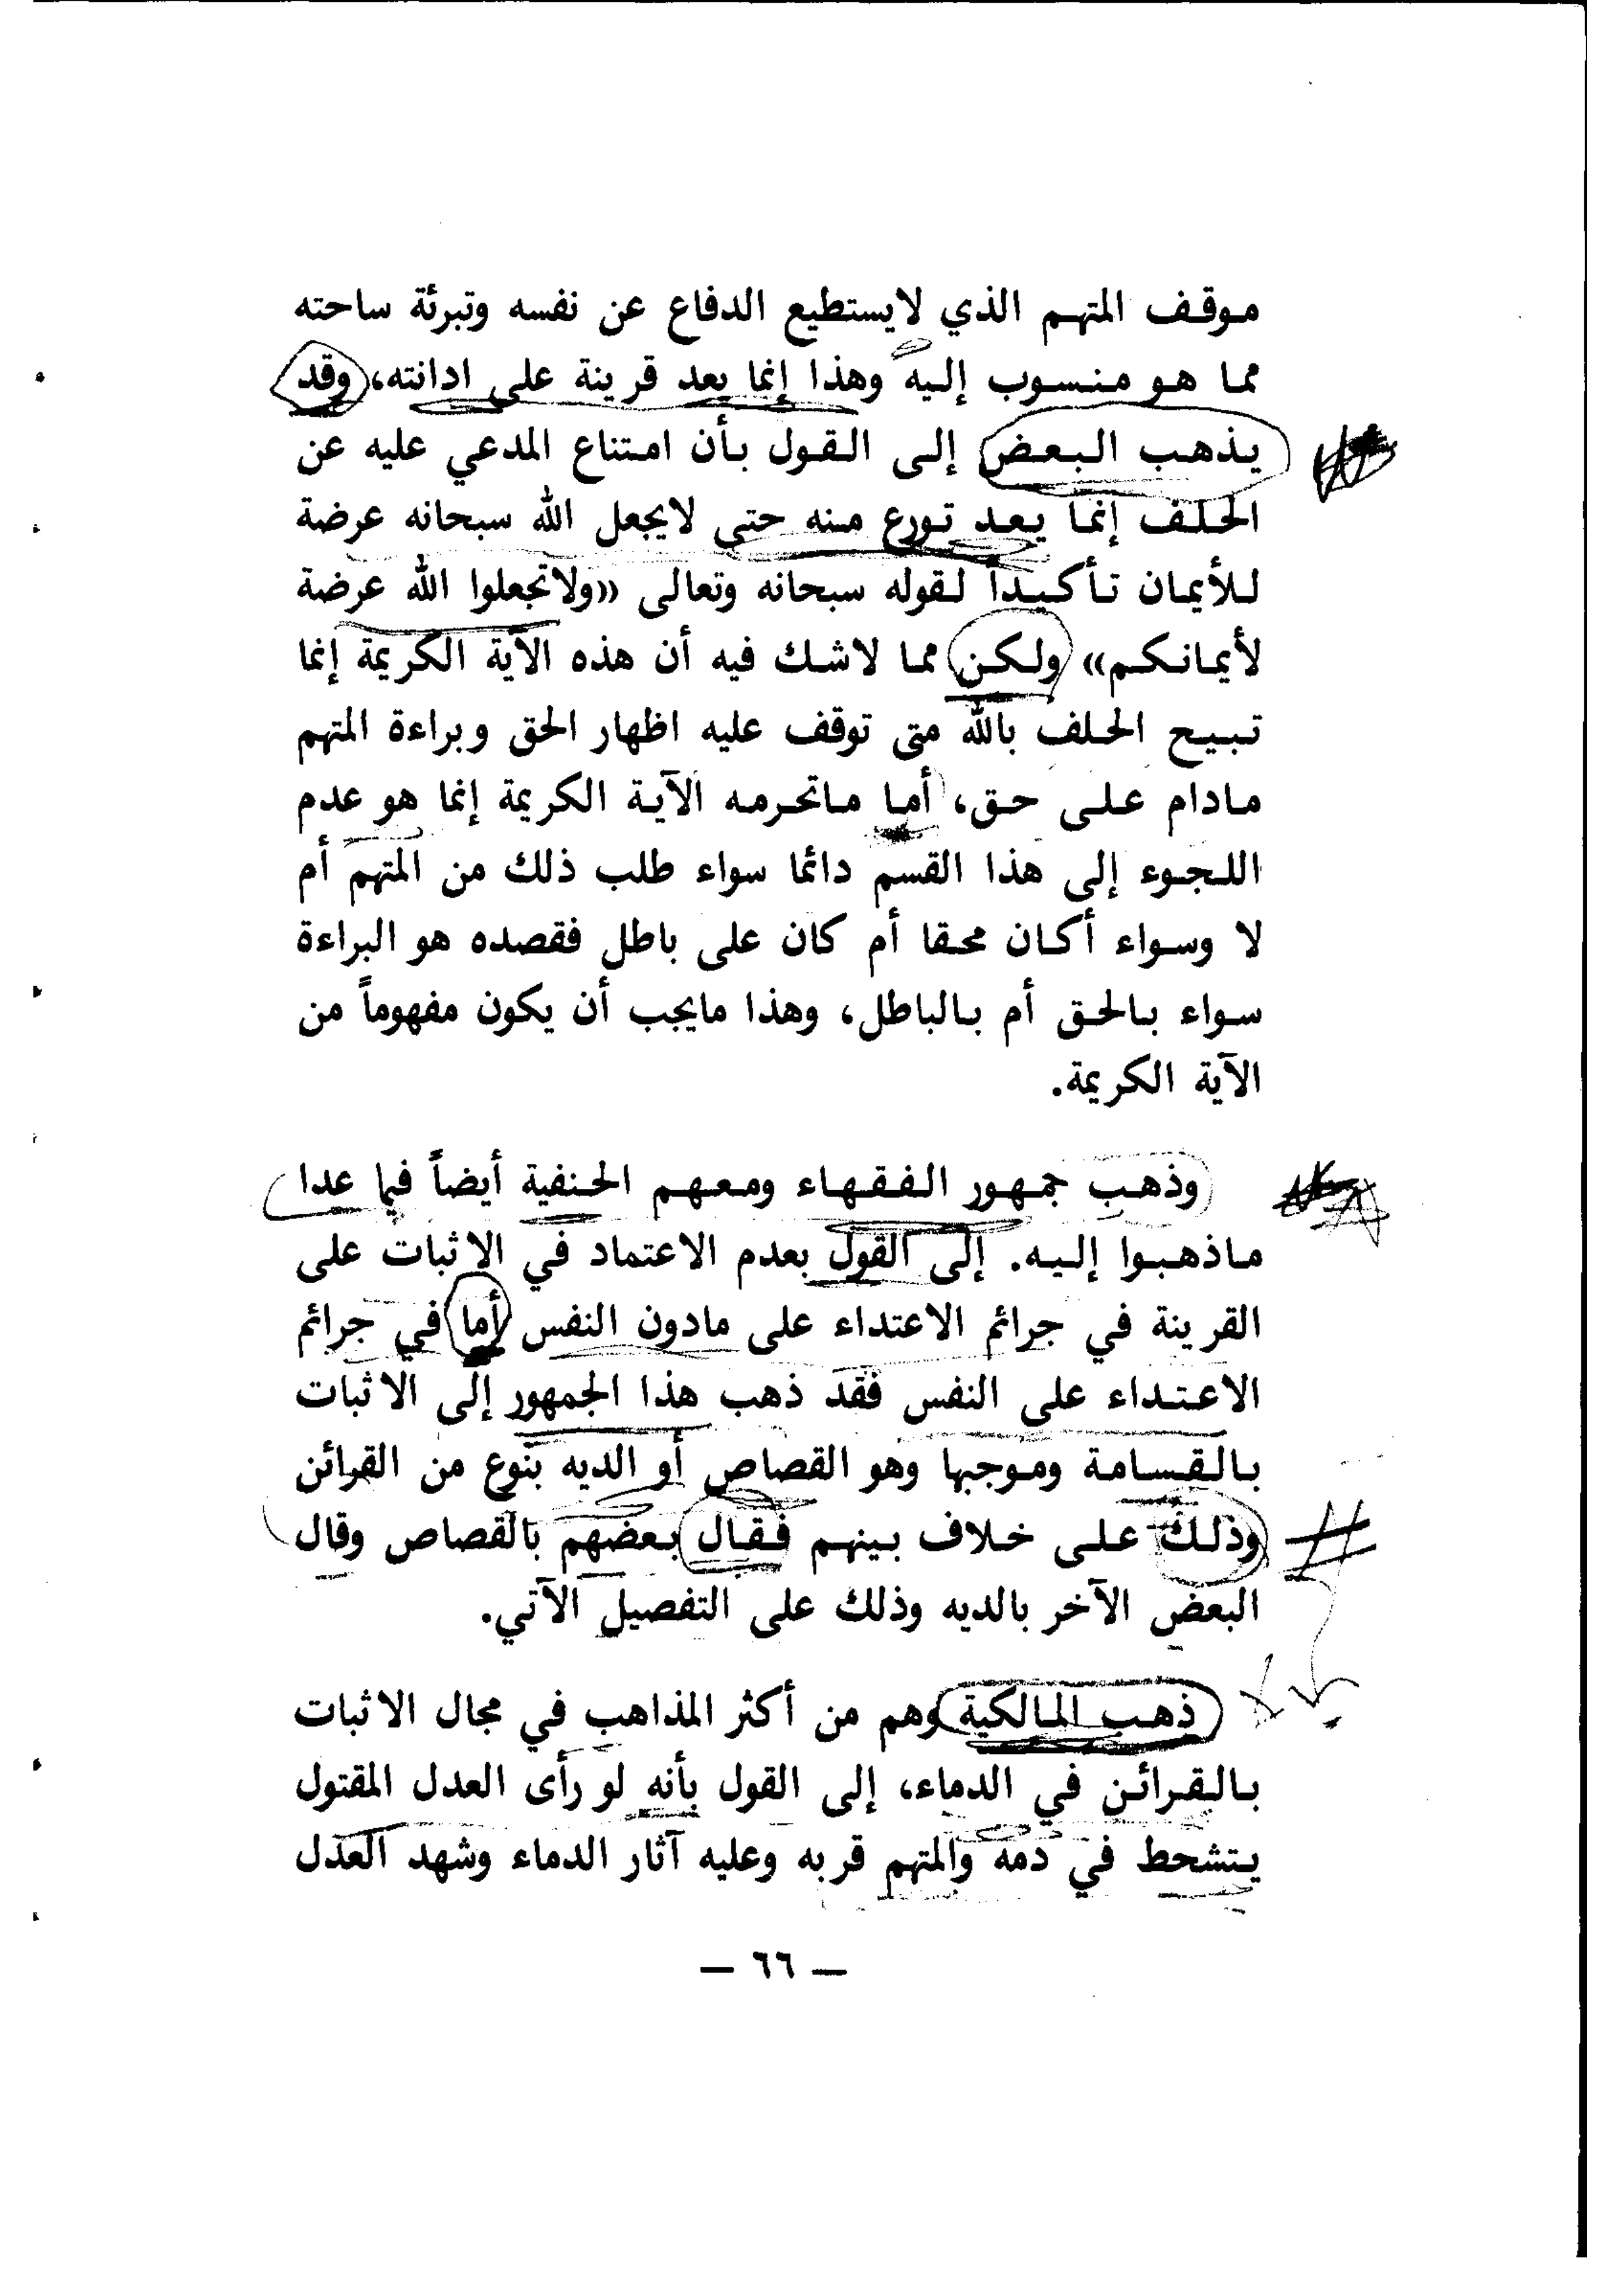 موقف المتهم الذي لايستطيع الدفاع عن نفسه وتبرئة ساحته
مما هو منسوب إليه وهذا إنما يعد قرينة على ادانته، وقد
يذهب البعض إلى القول بأن امتناع المدعي عليه عن
الحلف إنما يعد تورع منه حتى لايجعل الله سبحانه عرضة
للأيمان تأكيداً لقوله سبحانه وتعالى «ولاتجعلوا الله عرضة
لأيمانكم» ولكن مما لاشك فيه أن هذه الآية الكريمة إنما
تبيح الحلف بالله متى توقف عليه اظهار الحق وبراءة المتهم
مادام على حق، أما ماتحرمه الآية الكريمة إنما هو عدم
اللجوء إلى هذا القسم دائما سواء طلب ذلك من المتهم أم
لا وسواء أكان محقا أم كان على باطل فقصده هو البراءة
سواء بالحق أم بالباطل، وهذا مايجب أن يكون مفهوماً من
الآية الكريمة.
وذهب جمهور الفقهاء ومعهم الحنفية أيضاً فيما عدا
ماذهبوا إليه. إلى القول بعدم الاعتماد في الاثبات على
القرينة في جرائم الاعتداء على مادون النفس أما في جرائم
الاعتداء على النفس فقد ذهب هذا الجمهور إلى الاثبات
بالقسامة وموجبها وهو القصاص أو الديه بنوع من القرائن
وذلك على خلاف بينهم فقال بعضهم بالقصاص وقال
البعض الآخر بالديه وذلك على التفصيل الآتي.
ذهب المالكية وهم من أكثر المذاهب في مجال الاثبات
بالقرائن في الدماء، إلى القول بأنه لو رأى العدل المقتول
يتشحط في دمه والمتهم قربه وعليه آثار الدماء وشهد العدل
— ٦٦ —